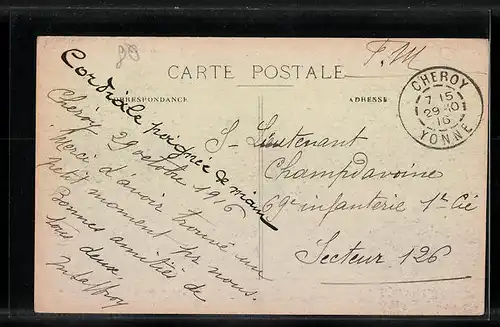 80
F. M
CARTE POSTALE
CORRESPONDANCE
ADRESSE
CHEROY
7 15
29-10
16
YONNE
Cordiale poignée de main
Chéroy 29 octobre 1916
Merci d'avoir trouvé un
petit moment pr nous.
Bonnes amitiés de
tous deux
S-Lieutenant
Champdavoine
69e infanterie 1re Cie
Secteur 126